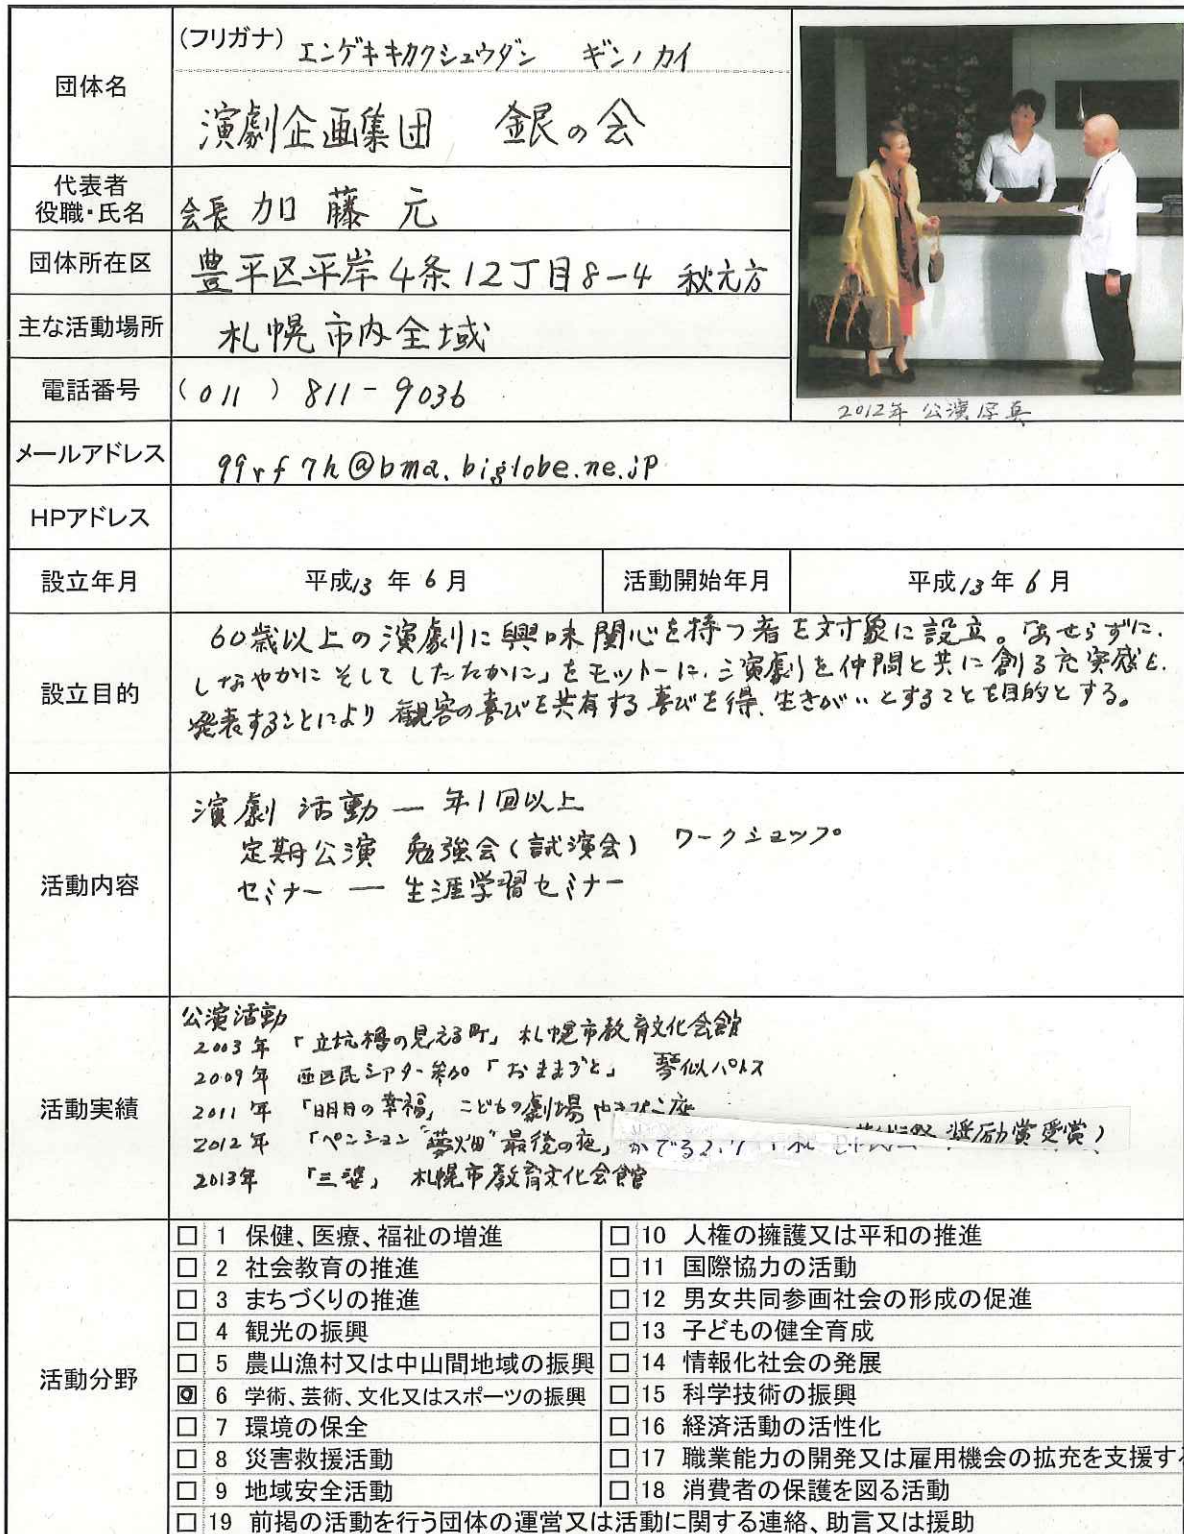 団体名
(フリガナ) エンゲキキカクシュウダン ギンノカイ
演劇企画集団 銀の会
代表者
役職・氏名
会長 加藤 元
団体所在区
豊平区平岸4条12丁目8-4 秋元方
主な活動場所
札幌市内全域
電話番号
(011) 811-9036
2012年 公演写真
メールアドレス
99rf7h@bma.biglobe.ne.jp
HPアドレス
設立年月
平成13年6月
活動開始年月
平成13年6月
設立目的
60歳以上の演劇に興味関心を持つ者を対象に設立。「あせらずに、
しなやかに そして したたかに」をモットーに、演劇を仲間と共に創る充実感と、
発表することにより 観客の喜びを共有する喜びを得、生きがいとすることを目的とする。
活動内容
演劇活動 ― 年1回以上
定期公演 勉強会(試演会) ワークショップ
セミナー ― 生涯学習セミナー
活動実績
公演活動
2003年 「立坑櫓の見える町」 札幌市教育文化会館
2009年 西区民シアター参加 「おままごと」 琴似パトス
2011年 「明日の幸福」 こどもの劇場 やまびこ座
2012年 「ペンション"夢畑"最後の夜」 かでる2.7 奨励賞受賞)
2013年 「三婆」 札幌市教育文化会館
活動分野
□ 1 保健、医療、福祉の増進
□ 2 社会教育の推進
□ 3 まちづくりの推進
□ 4 観光の振興
□ 5 農山漁村又は中山間地域の振興
◙ 6 学術、芸術、文化又はスポーツの振興
□ 7 環境の保全
□ 8 災害救援活動
□ 9 地域安全活動
□ 10 人権の擁護又は平和の推進
□ 11 国際協力の活動
□ 12 男女共同参画社会の形成の促進
□ 13 子どもの健全育成
□ 14 情報化社会の発展
□ 15 科学技術の振興
□ 16 経済活動の活性化
□ 17 職業能力の開発又は雇用機会の拡充を支援す
□ 18 消費者の保護を図る活動
□ 19 前掲の活動を行う団体の運営又は活動に関する連絡、助言又は援助